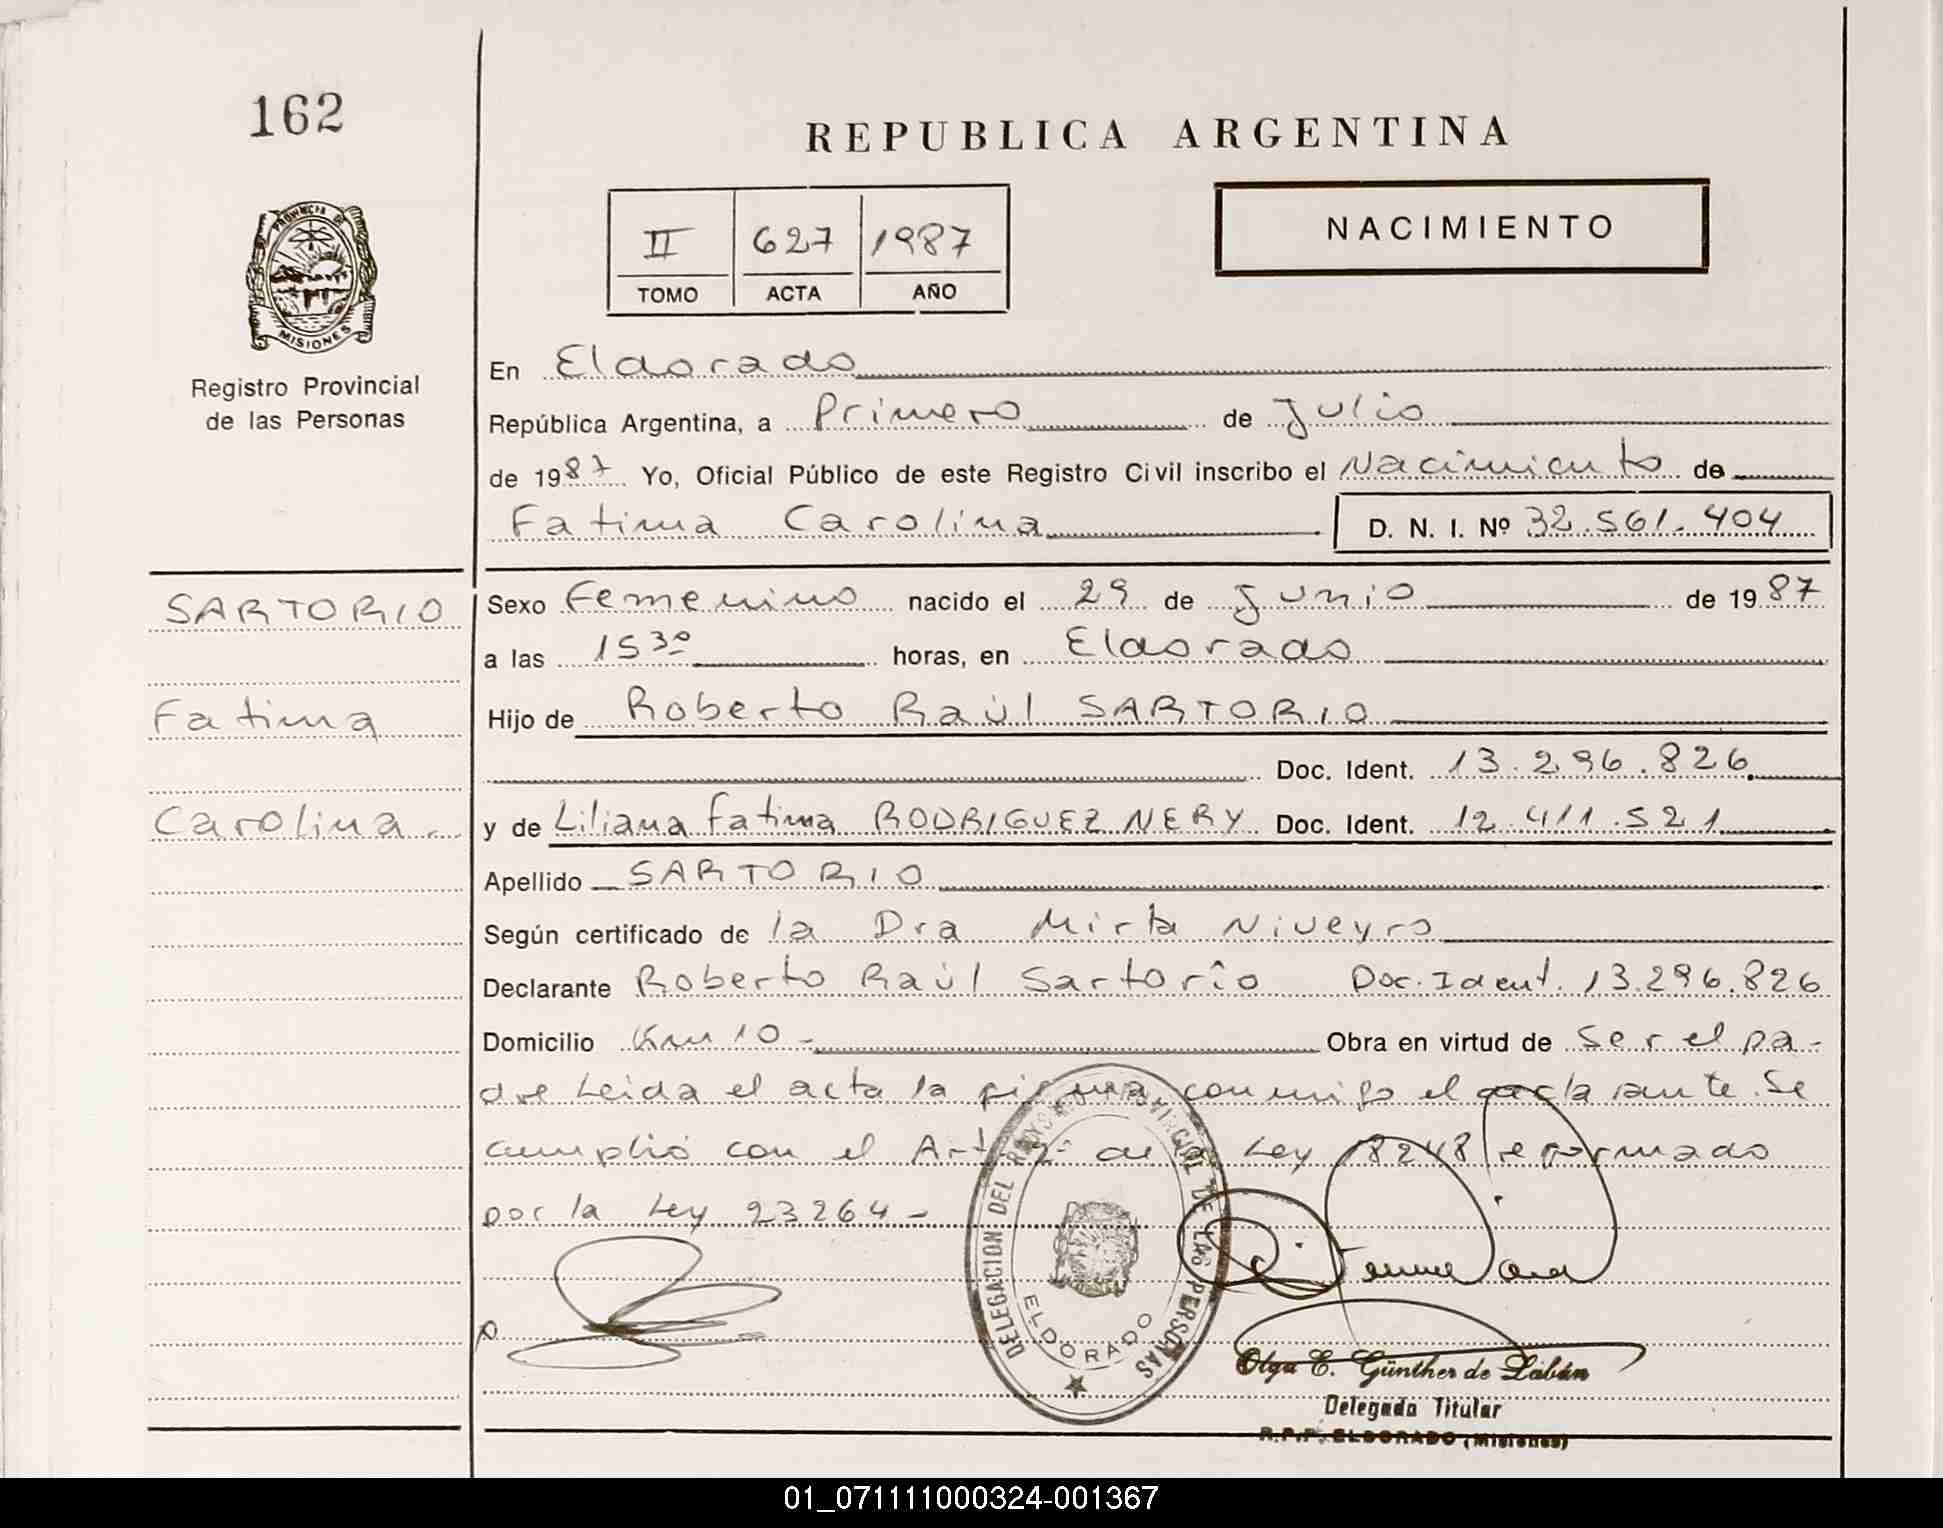 162
REPUBLICA ARGENTINA
II 627 1987
TOMO ACTA AÑO
NACIMIENTO
PROVINCIA DE
MISIONES
Registro Provincial
de las Personas
En Eldorado
República Argentina, a Primero de Julio
de 1987 Yo, Oficial Público de este Registro Civil inscribo el Nacimiento de
Fatima Carolina D. N. I. Nº 32.561.404
SARTORIO
Fatima
Carolina.
Sexo Femenino nacido el 29 de Junio de 1987
a las 15³⁰ horas, en Eldorado
Hijo de Roberto Raúl SARTORIO
Doc. Ident. 13.296.826
y de Liliana Fatima RODRIGUEZ NERY Doc. Ident. 12.411.521
Apellido SARTORIO
Según certificado de la Dra Mirta Niveyro
Declarante Roberto Raúl Sartorio Doc. Ident. 13.296.826
Domicilio Km 10 - Obra en virtud de Ser el pa-
dre Leida el acta la firma conmigo el declarante. Se
cumplió con el Art. de la Ley 18248 reformado
por la Ley 23264 -
DELEGACION DEL REGISTRO PROVINCIAL DE LAS PERSONAS
ELDORADO
Olga E. Günther de Labán
Delegada Titular
R.P.P. ELDORADO (Misiones)
01_071111000324-001367